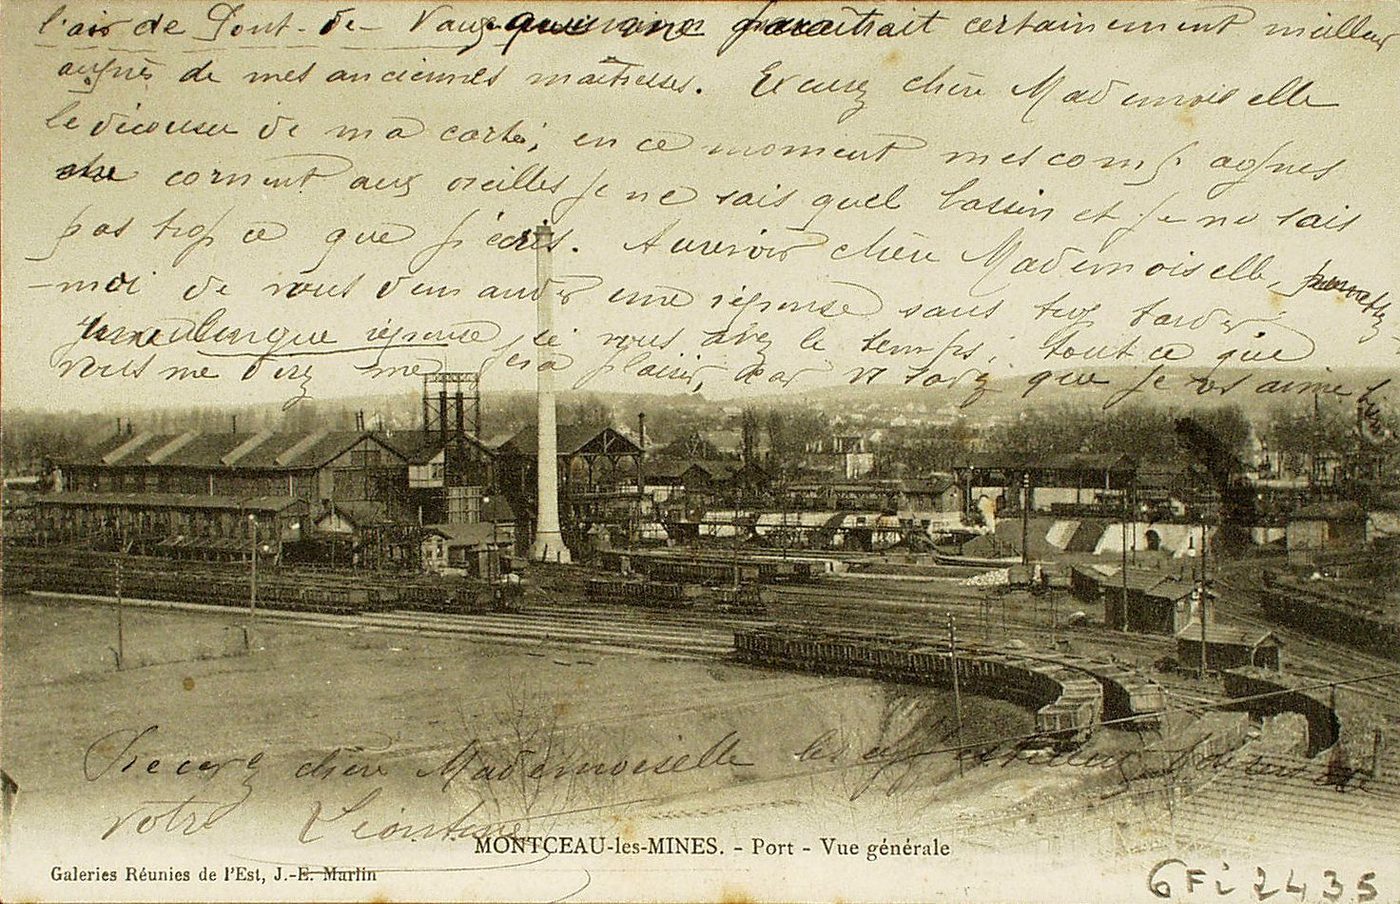 l'air de Pont-de-Vaux me paraîtrait certainement meilleur
auprès de mes anciennes maîtresses. Excusez chère Mademoiselle
le décousu de ma carte, en ce moment mes compagnes
me cornent aux oreilles je ne sais quel bassin et je ne sais
pas trop ce que j'écris. Aurevoir chère Mademoiselle, permettez
-moi de vous demander une réponse sans trop tarder
une longue réponse si vous avez le temps; tout ce que
vous me direz me fera plaisir, car vs savez que je vs aime
Recevez chère Mademoiselle les affectueux baisers de
votre Léontine
MONTCEAU-les-MINES. - Port - Vue générale
Galeries Réunies de l'Est, J.-E. Martin
6Fi2435